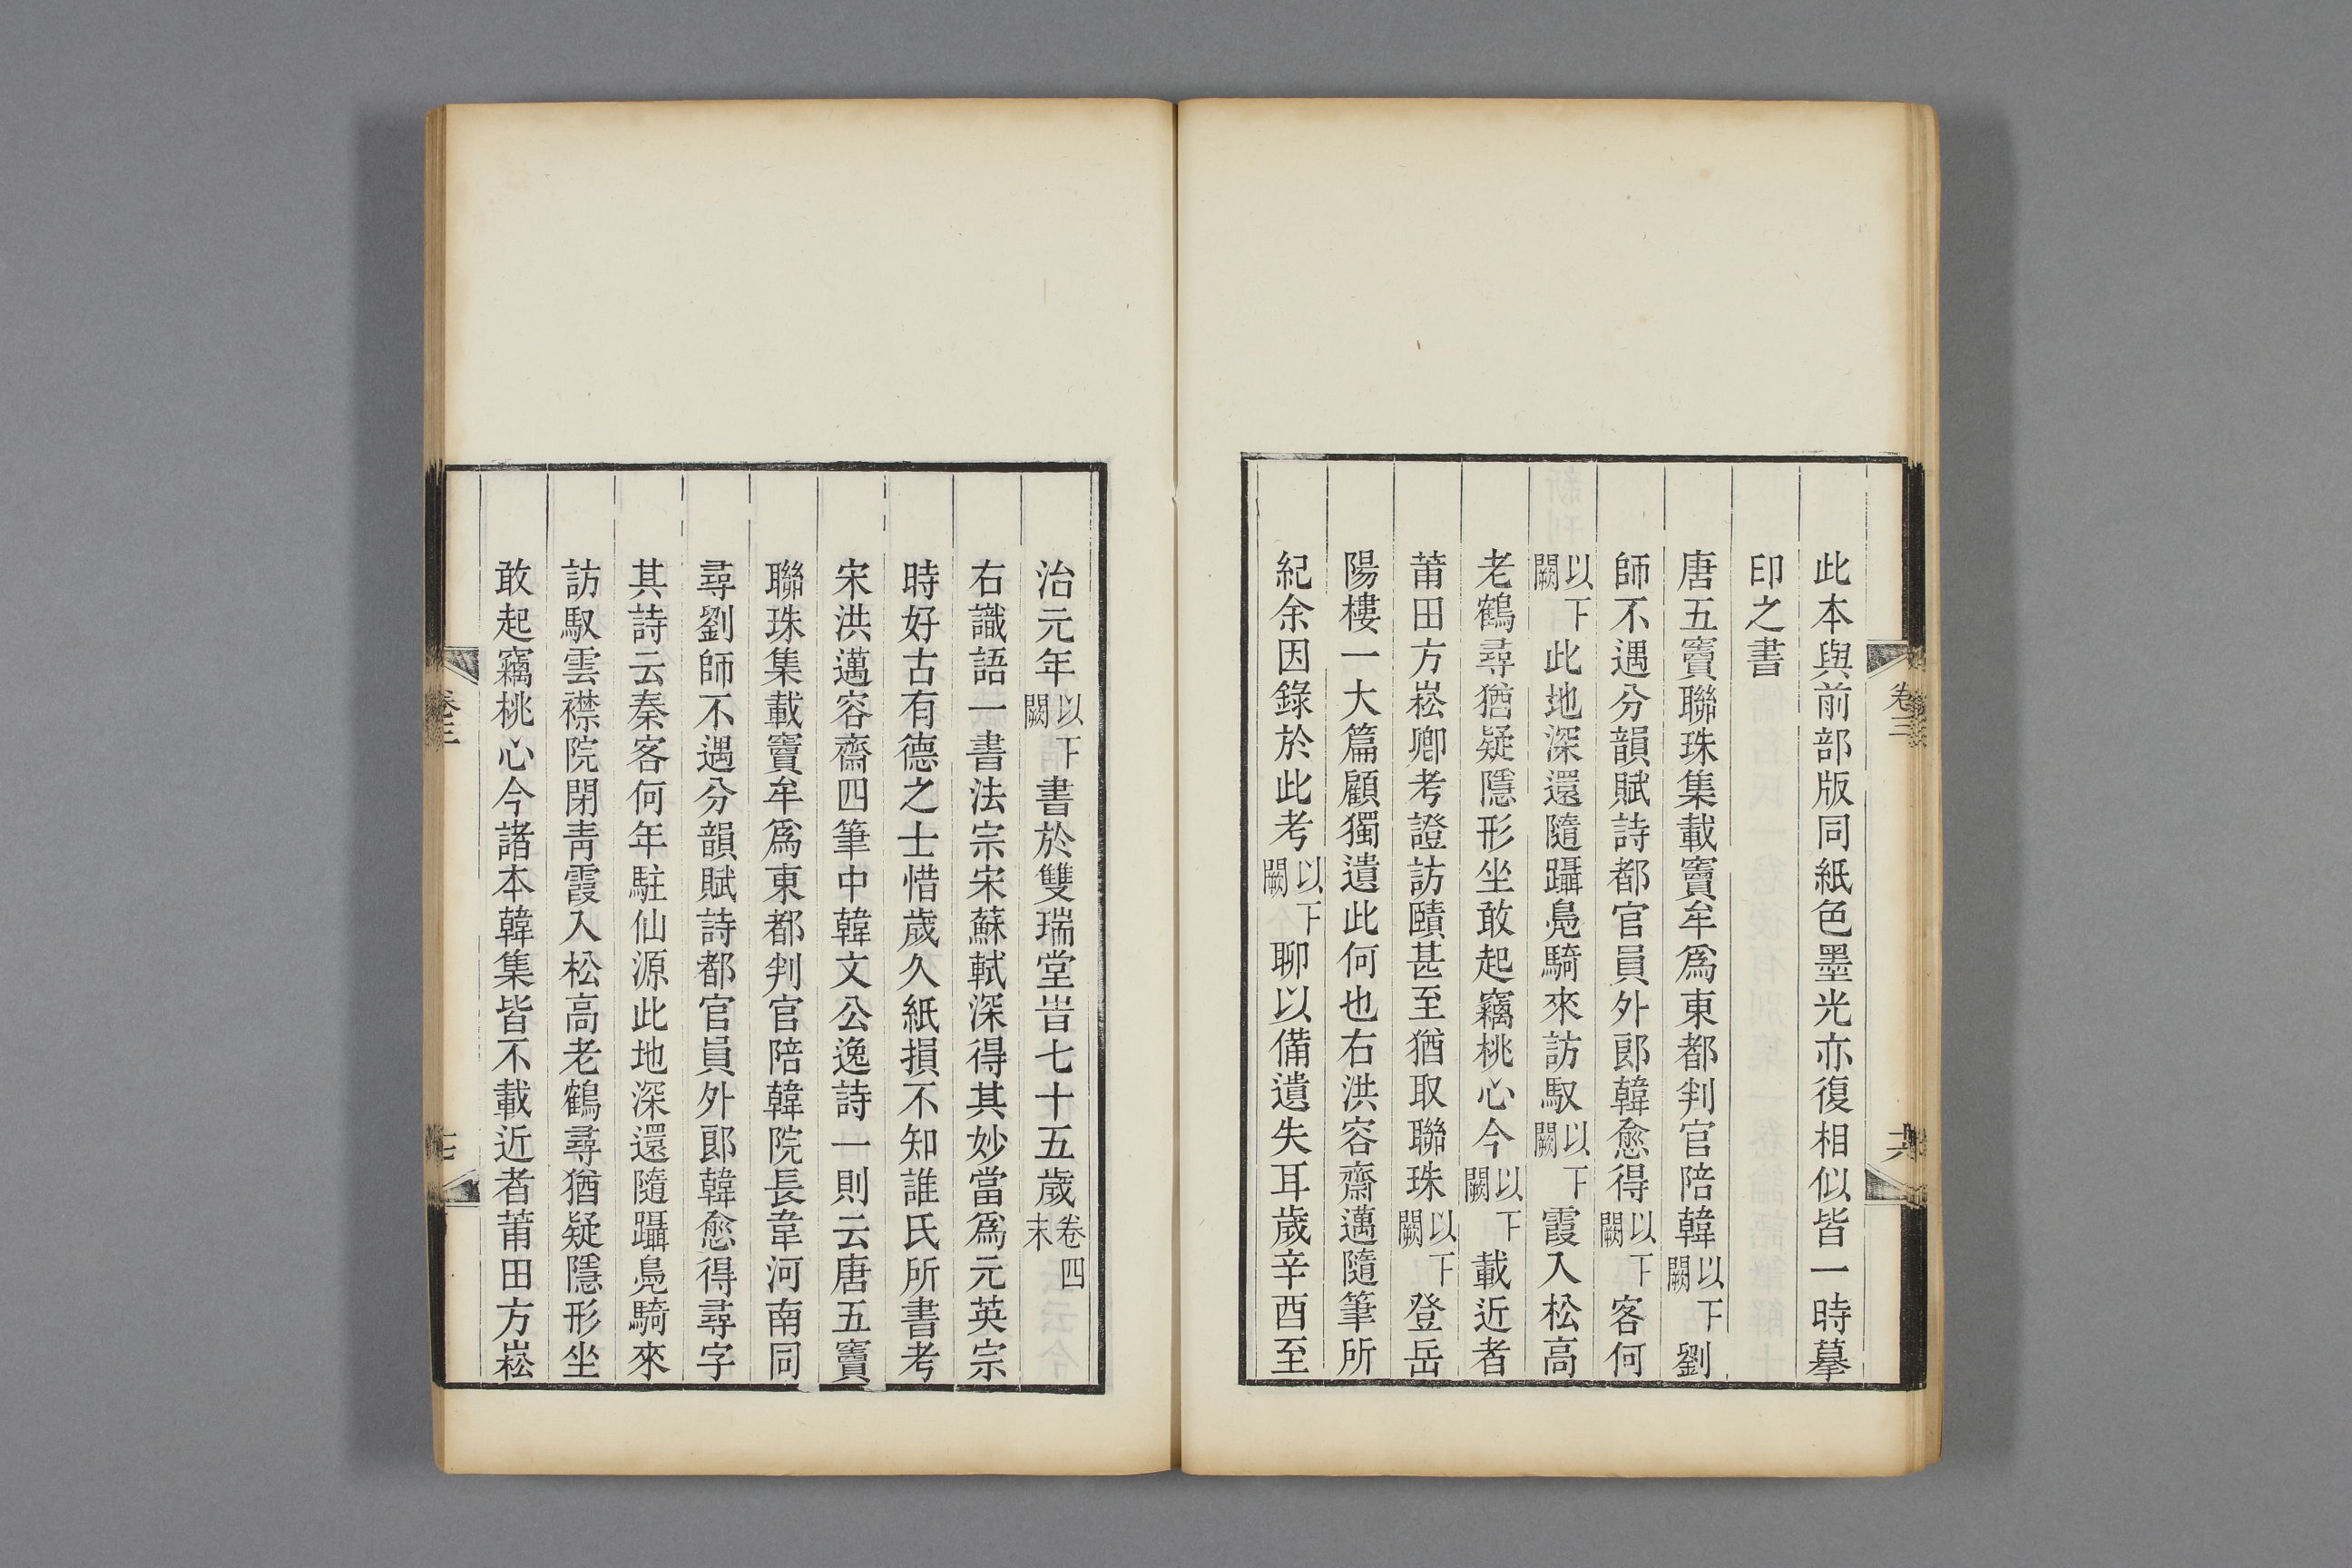 此本與前部版同紙色墨光亦復相似皆一時摹
印之書
唐五竇聯珠集載竇牟爲東都判官陪韓以下闕劉
師不遇分韻賦詩都官員外郎韓愈得以下闕客何
以下闕此地深還隨躡鳧騎來訪馭以下闕霞入松高
老鶴尋猶疑隱形坐敢起竊桃心今以下闕載近者
莆田方崧卿考證訪賾甚至猶取聯珠以下闕登岳
陽樓一大篇顧獨遺此何也右洪容齋邁隨筆所
紀余因錄於此考以下闕聊以備遺失耳歲辛酉至
治元年以下闕書於雙瑞堂旹七十五歲卷四末
右識語一書法宗宋蘇軾深得其妙當爲元英宗
時好古有德之士惜歲久紙損不知誰氏所書考
宋洪邁容齋四筆中韓文公逸詩一則云唐五竇
聯珠集載竇牟爲東都判官陪韓院長韋河南同
尋劉師不遇分韻賦詩都官員外郎韓愈得尋字
其詩云秦客何年駐仙源此地深還隨躡鳧騎來
訪馭雲襟院閉靑霞入松高老鶴尋猶疑隱形坐
敢起竊桃心今諸本韓集皆不載近者莆田方崧
卷三
六
卷三
七